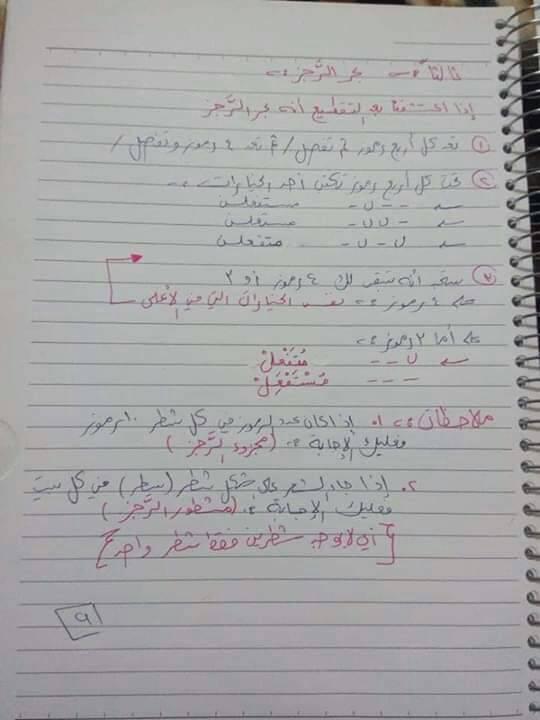 ثالثاً :- بحر الرَّجز :-
إذا اكتشفنا بعد التقطيع أنه بحر الرَّجز
① نعد كل أربع رموز ثم نفصل / ثم نعد ٤ رموز ونفصل /
② تحت كل أربع رموز نكتب أحد الخيارات :-
ـ - - ں - مستفعلن
ـ - ں ں - مستعلن
ـ ں - ں - متفعلن
③ سنجد أنه تبقى لك ٤ رموز أو ٣
ـ ٤ رموز :- نفس الخيارات التي في الأعلى
ـ أما ٣ رموز :-
ـ ں - - مُتَفْعِلْ
- - - مُسْتَفْعِلْ
ملاحظات :- ١. إذا كان عدد الرموز في كل شطر ١٠ رموز
فعليك الإجابة :- (مجزوء الرَّجز)
٢. إذا جاء الشعر على شكل شطر (سطر) في كل بيت
فعليك الإجابة :- (مشطور الرَّجز)
[أي لا يوجد شطرين فقط شطر واحد]
٩